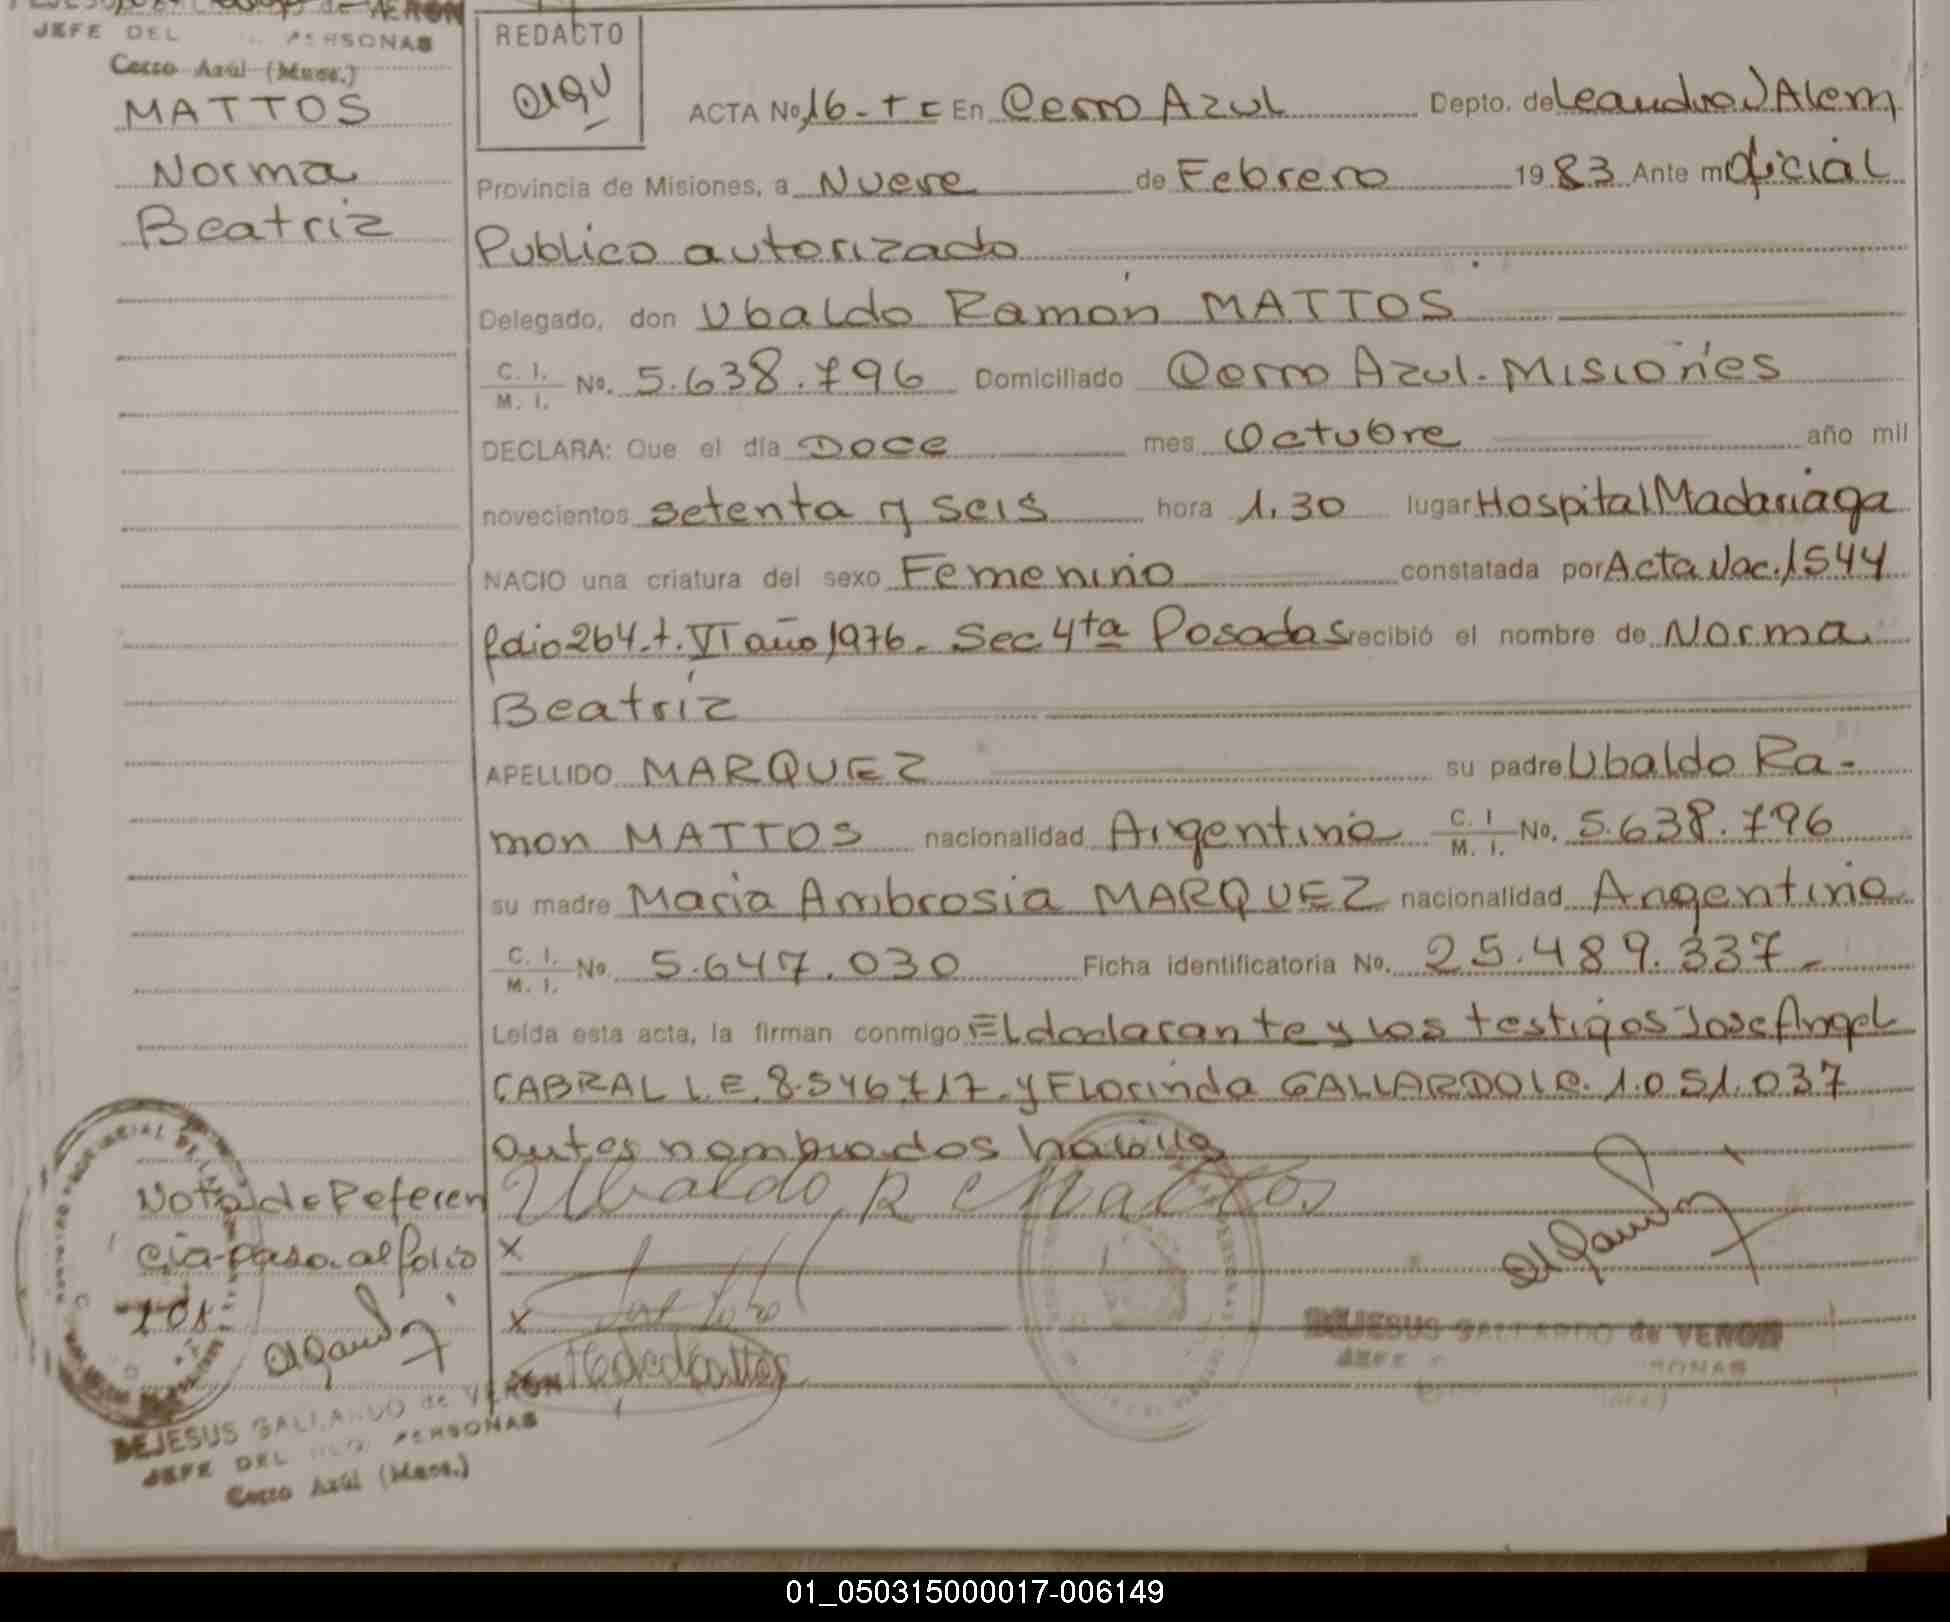 VERON
JEFE DEL PERSONAS
Cerro Azúl (Mnes.)
MATTOS
Norma
Beatriz
REDACTO
ACTA No 16 - t I En Cerro Azul Depto. de Leandro N Alem
Provincia de Misiones, a Nueve de Febrero 1983 Ante mi Oficial
Publico autorizado
Delegado, don Ubaldo Ramón MATTOS
C. I. / M. I. No. 5.638.796 Domiciliado Cerro Azul - Misiones
DECLARA: Que el día Doce mes Octubre año mil
novecientos setenta y seis hora 1.30 lugar Hospital Madariaga
NACIO una criatura del sexo Femenino constatada por Acta Nac. 1544
folio 264 - t. VI año 1976 - Sec 4ta Posadas recibió el nombre de Norma
Beatriz
APELLIDO MARQUEZ su padre Ubaldo Ra-
mon MATTOS nacionalidad Argentina C. I / M. I. No. 5.638.796
su madre Maria Ambrosia MARQUEZ nacionalidad Argentina
C. I. / M. I. No 5.647.030 Ficha identificatoria No. 25.489.337 -
Leída esta acta, la firman conmigo El declarante y los testigos Jose Angel
CABRAL L.E. 8.546.717 - y Florinda GALLARDO L.C. 1.051.037
antes nombrados habiles
Ubaldo R Mattos
Nota de Referen
cia - paso al folio
101 -
X
X
DEJESUS GALLARDO de VERON
JEFE PERSONAS
DEJESUS GALLARDO de VERON
JEFE DEL REG. PERSONAS
Cerro Azúl (Mnes.)
01_050315000017-006149